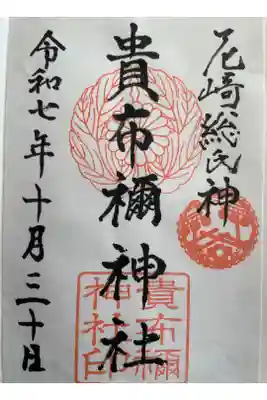 尼崎総氏神
貴布禰神社
貴布禰
神社印
令和七年十月三十日